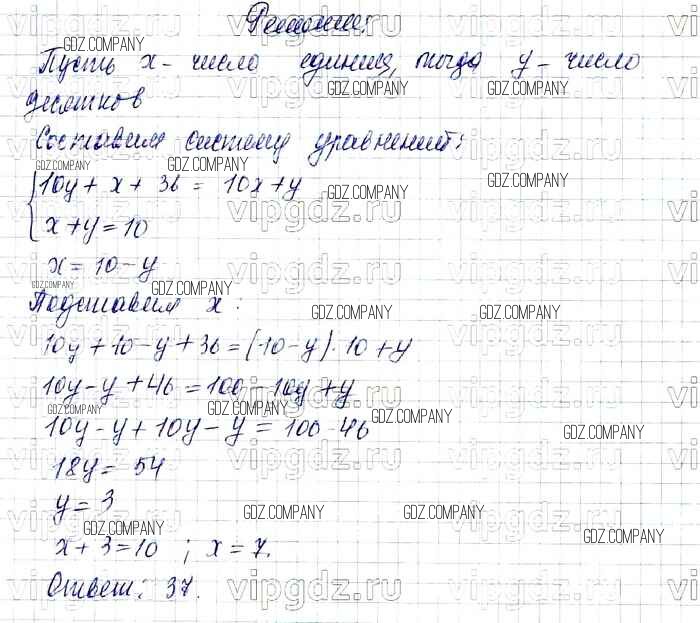 Решение:
Пусть x - число единиц, тогда y - число
десятков
Составим систему уравнений:
10y + x + 36 = 10x + y
x + y = 10
x = 10 - y
Подставим x:
10y + 10 - y + 36 = (10 - y) · 10 + y
10y - y + 46 = 100 - 10y + y
10y - y + 10y - y = 100 - 46
18y = 54
y = 3
x + 3 = 10 ; x = 7.
Ответ: 37.
GDZ.COMPANY
vipgdz.ru